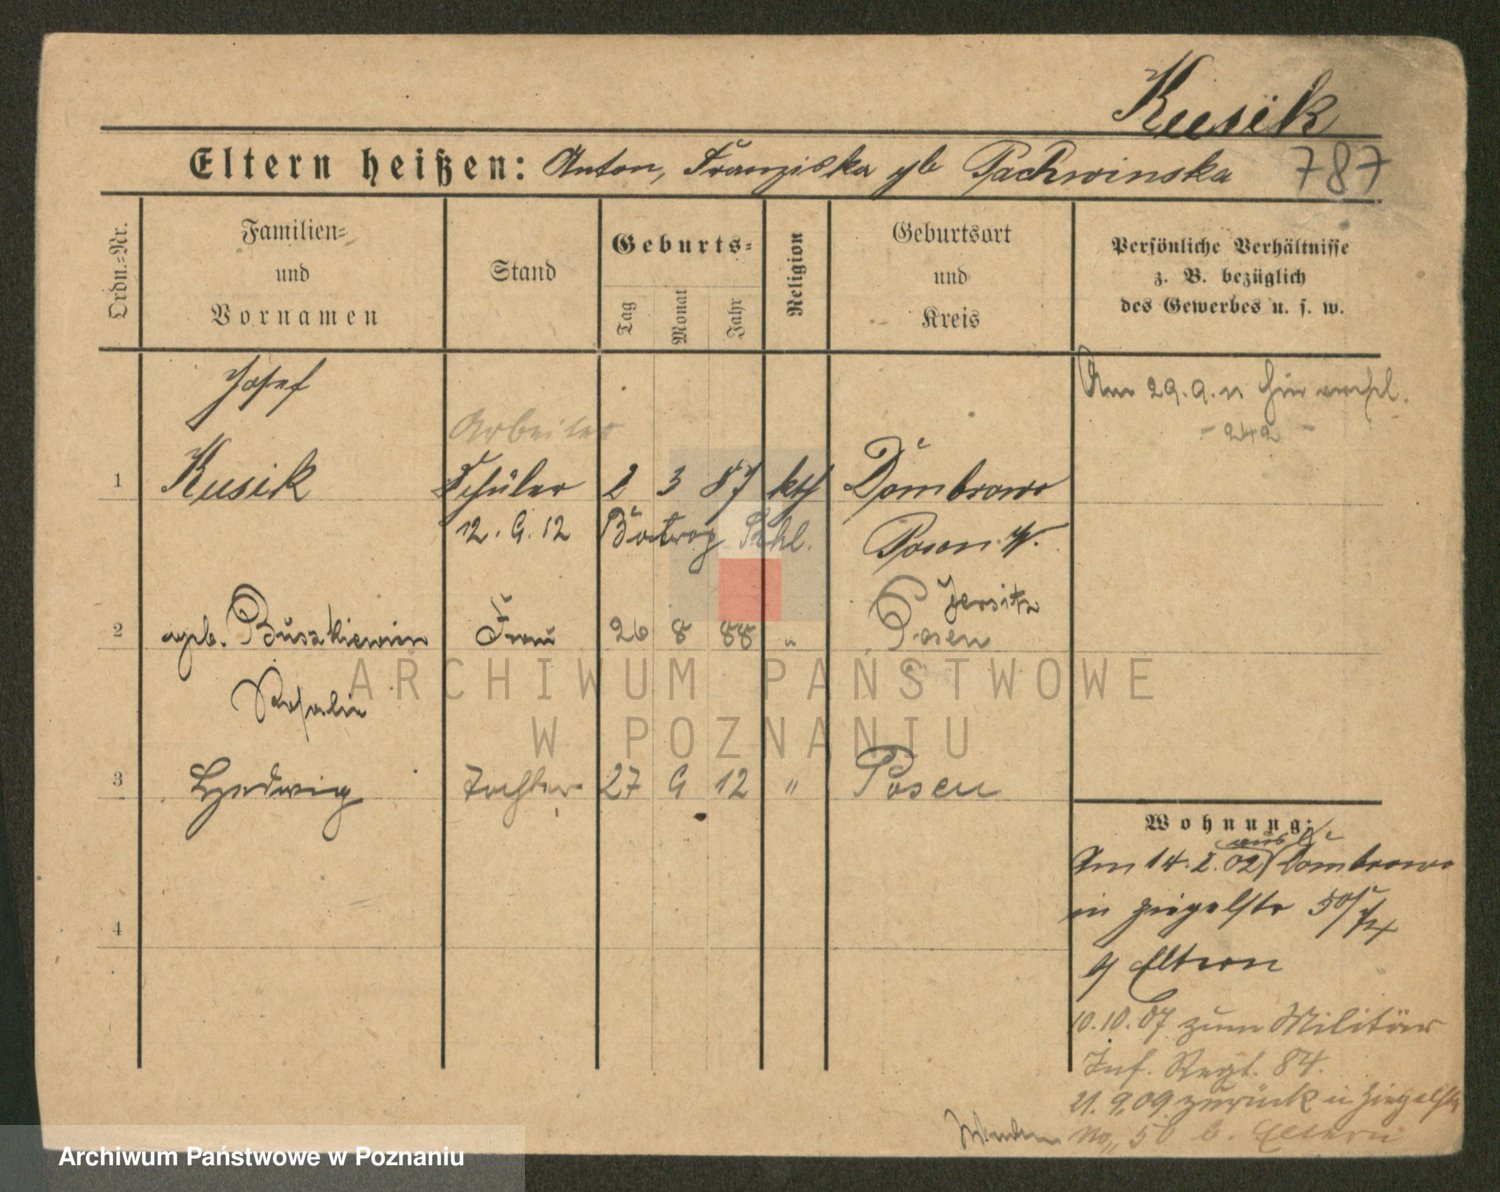 Kusik
Eltern heißen: Anton, Franziska gb Pachwinska 787
Ordn.-Nr.
Familien-
und
Vornamen
Stand
Geburts-
Tag
Monat
Jahr
Religion
Geburtsort
und
Kreis
Persönliche Verhältnisse
z. B. bezüglich
des Gewerbes u. s. w.
Josef
Am 29.9.11 hier verehel.
- 242 -
Arbeiter
1 Kusik Schüler 2 3 87 kth Dombrowo
12. 9. 12 Posen W.
Jersitz
2 geb. Buszkiewicz Frau 26 8 88 " Posen
Rosalie
3 Hedwig Tochter 27 9 12 " Posen
4
Wohnung:
Am 14.2.02 aus Dombrowo
in Ziegelstr 50
b Eltern
10.10.07 zum Militär
Inf. Regt. 84.
21.9.09 zurück in Ziegelstr
No 50 b. Eltern
ARCHIWUM PAŃSTWOWE
W POZNANIU
Archiwum Państwowe w Poznaniu